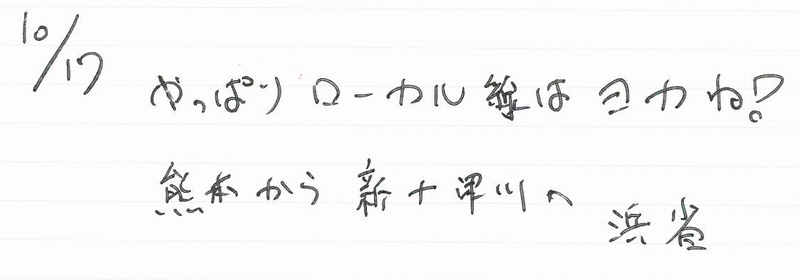 10/17
やっぱりローカル線はヨカね!?
熊本から新十津川へ
浜省